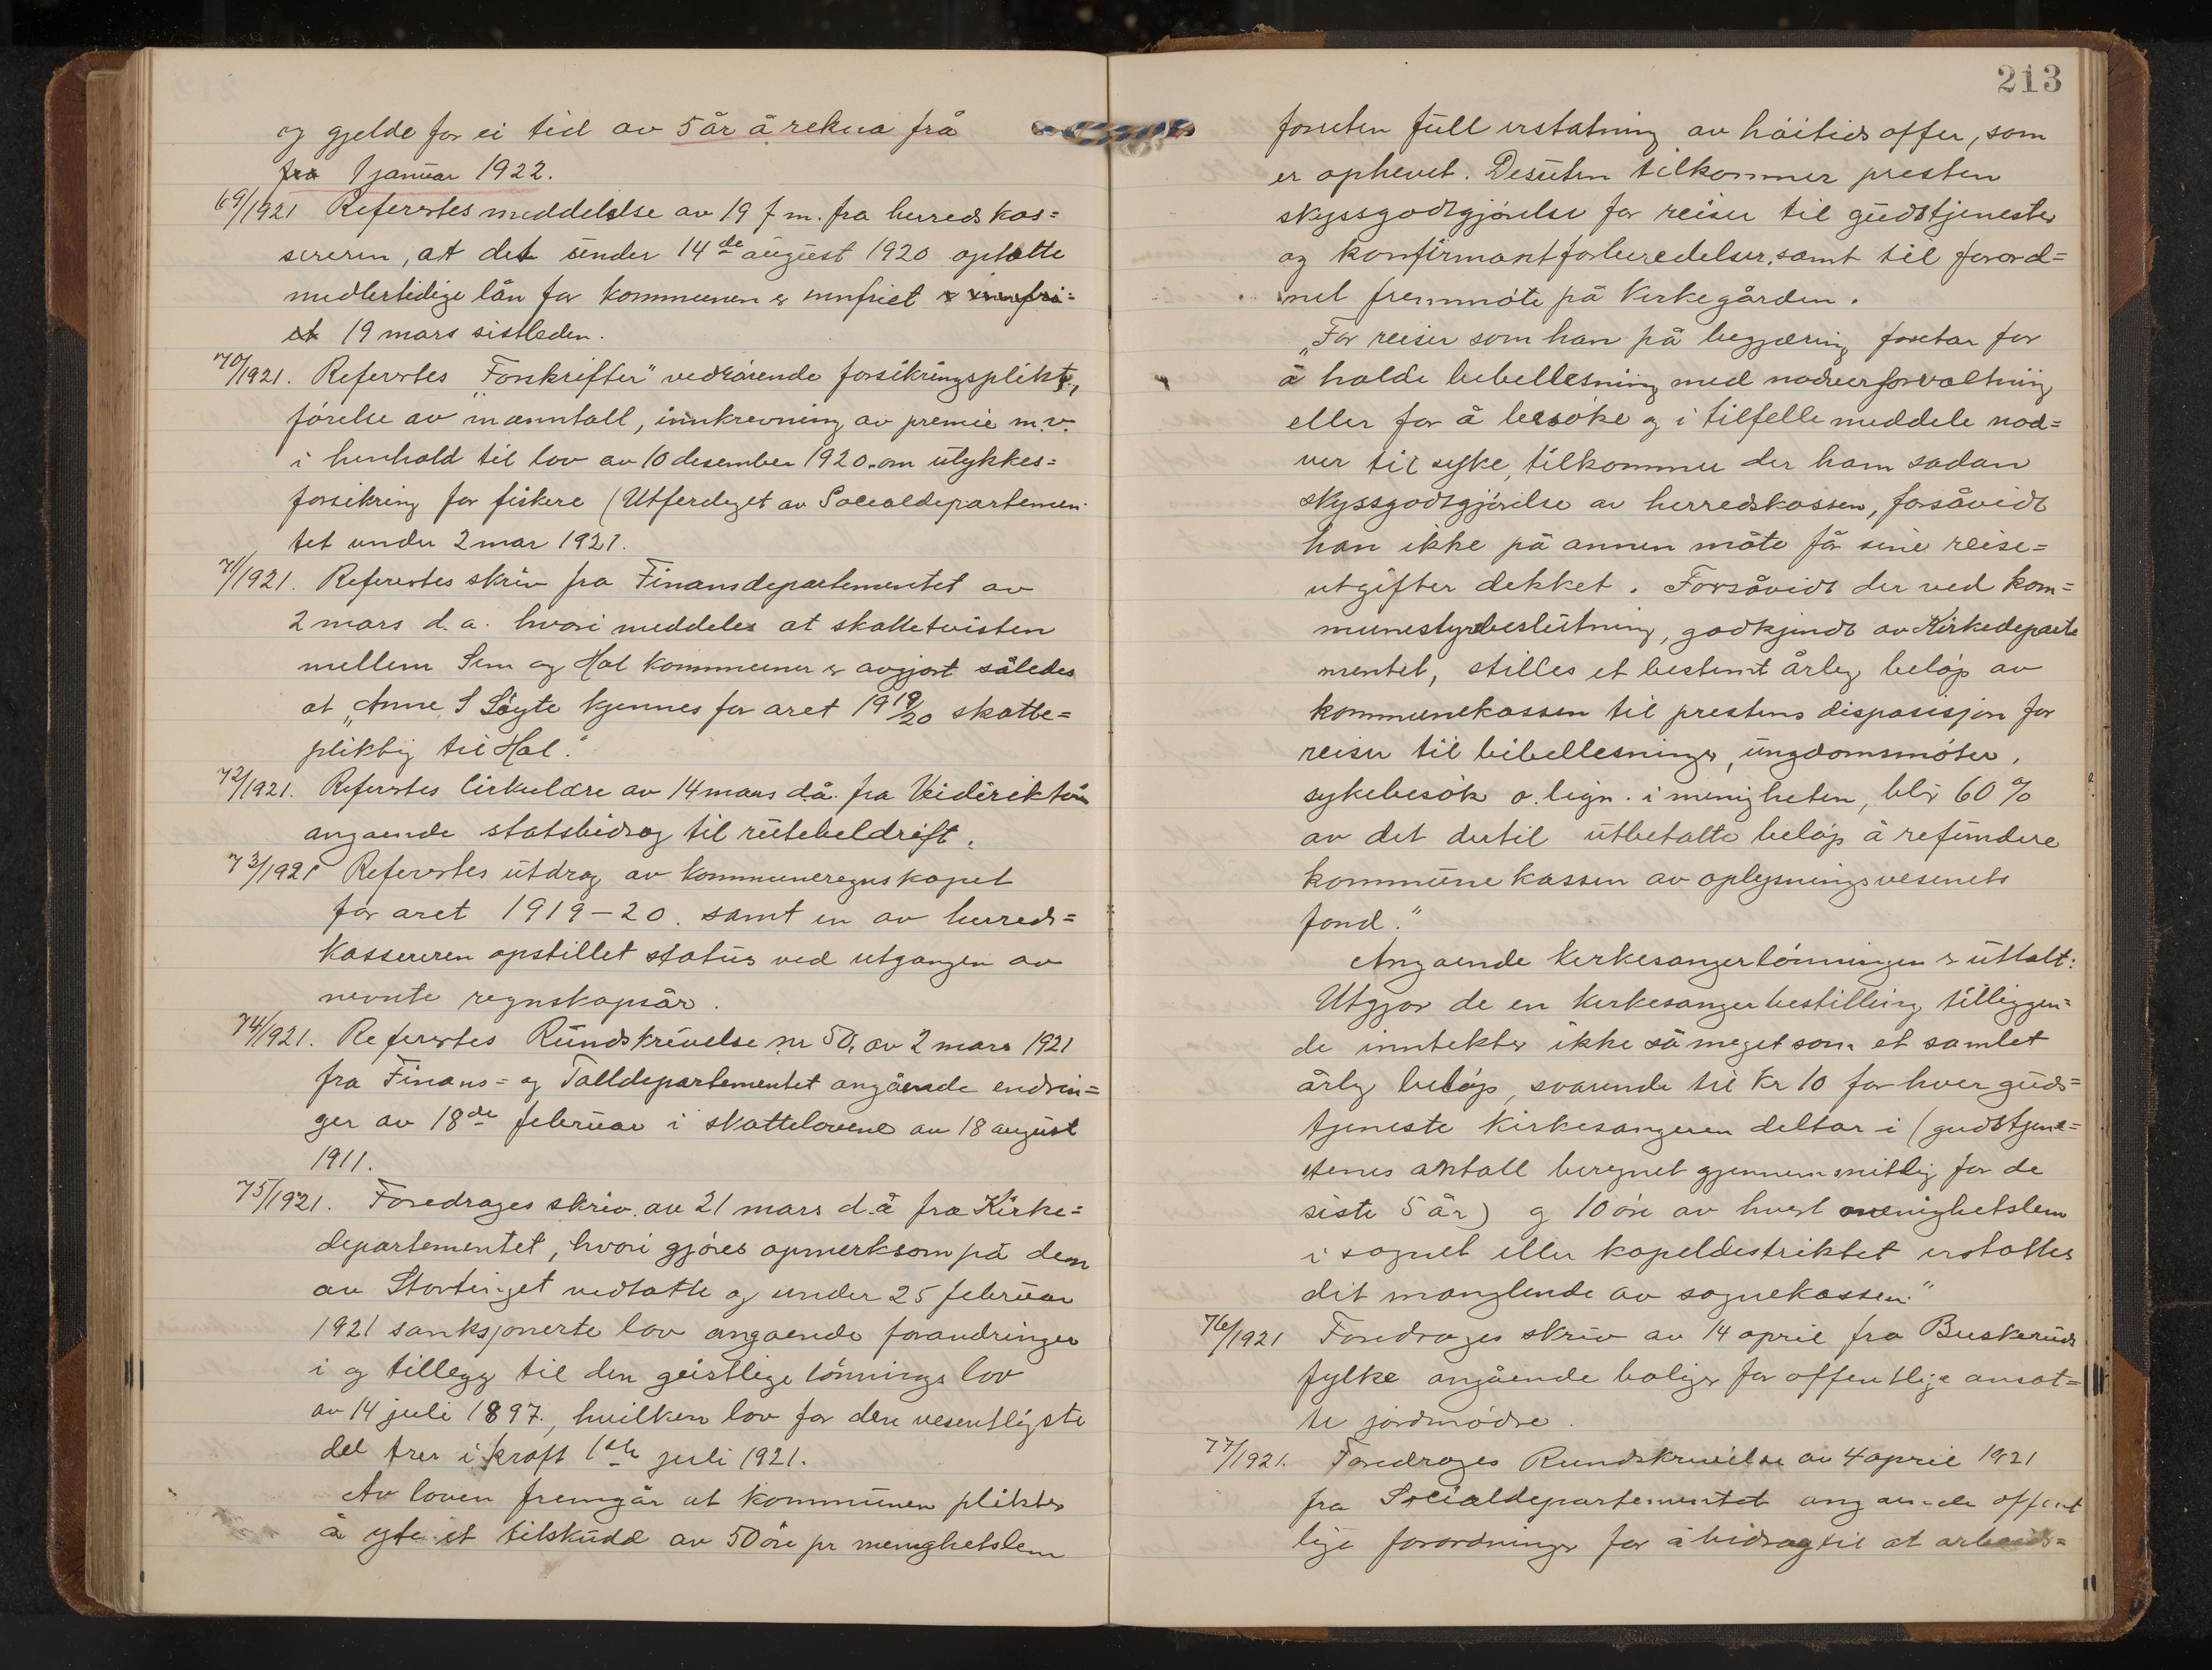 og gjelde for ei tid av 5 år å rekna frå
fra 1 januar 1922.
69/1921 Referertes meddelelse av 19 f m. fra herredskas=
sereren, at det under 14de august 1920 optatte
midlertidige lån for kommunen er innfriet
et 19 mars sistleden.
70/1921. Referertes "Forskrifter" vedrörende forsikringsplikt,
förelse av manntall, innkrevning av premie m.v.
i henhold til lov av 10 desember 1920. om ulykkes=
forsikring for fiskere (Utferdiget av Socialdepartemen-
tet under 2 mar 1921.
71/1921. Referertes skriv fra Finansdepartementet av
2 mars d.a. hvori meddeles at skattetvisten
mellem Sem og Hol kommuner er avgjort således
at "Anne S Söyte kjennes for aret 1919/20 skatte=
pliktig til Hol."
72/1921. Referertes Cirkulære av 14 mars då. fra Veidirektör
angaende statsbidrag til rutebildrift.
73/1921 Referertes utdrag av kommuneregnskapet
for aret 1919-20. samt en av herreds=
kassereren opstillet status ved utgangen av
nevnte regnskapsår.
74/1921. Referertes Rundskrivelse nr 50, av 2 mars 1921
fra Finans= og Tolldepartementet angående endrin=
ger av 18de februar i skattelovene av 18 august
1911.
75/1921. Foredrages skriv. av 21 mars d.å fra Kirke=
departementet, hvori gjöres opmerksom på den
av Stortinget vedtatte og under 25 februar
1921 sanksjonerte lov angaende forandringer
i og tillegg til den geistlige lönnings lov
av 14 juli 1897., hvilken lov for den vesentligste
del trer i kraft 1ste juli 1921.
Av loven fremgår at kommunen plikter
å yte et tilskudd av 50 öre pr menighetslem
213
foruten full erstatning av höitidsoffer, som
er ophevet. Desuten tilkommer presten
skyssgodtgjörelse for reiser til gudstjenester
og konfirmantforberedelser, samt til forord=
net fremmöte på Kirkegården.
"For reiser som han på begjæring foretar for
å holde bibellesning med nadverforvaltning
eller for å besöke og i tilfelle meddele nad=
ver til syke, tilkommer der ham sadan
skyssgodtgjörelse av herredskassen, forsåvidt
han ikke på annen måte får sine reise=
utgifter dekket. Forsåvidt der ved kom=
munestyrebeslutning, godkjendt av Kirkedeparte
mentet, stilles et bestemt årlig belöp av
kommunekassen til prestens disposisjon for
reiser til bibellesninger, ungdomsmöter,
sykebesök o. lign. i menigheten, blir 60 %
av det dertil utbetalte belöp å refundere
kommunekassen av oplysningsvesenets
fond."
Angaende kirkesangerlönningen er uttalt:
Utgjör de en kirkesangerbestilling tilliggen=
de inntekter ikke så meget som et samlet
årlig belöp, svarende til kr 10 for hver guds=
tjeneste kirkesangeren deltar i (gudstjene=
stenes antall beregnet gjennemsnitlig for de
siste 5 år) og 10 öre av hvert menighetslem
i sognet eller kapeldistriktet erstattes
det manglende av sognekassen."
76/1921 Foredrages skriv av 14 april fra Buskeruds
fylke angående boliger for offentlige ansat=
te jordmödre.
77/1921. Foredrages Rundskrivelse av 4 april 1921
fra Socialdepartementet angaende offent
lige forordninger for å bidrag til at arbeids=